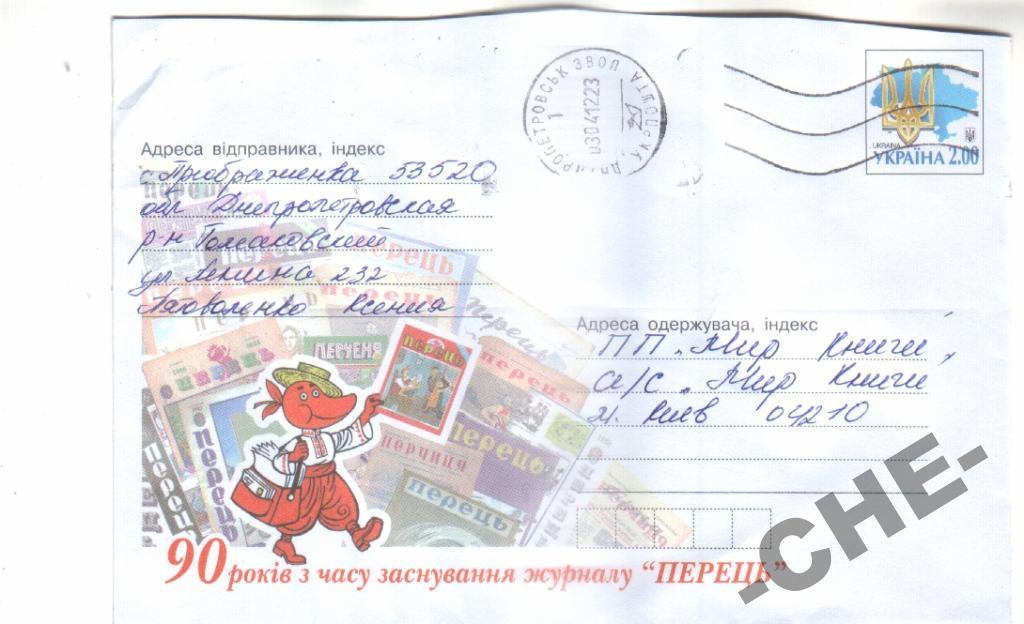 ДНІПРОПЕТРОВСЬК ЗВОП
1
03041223
УКРПОШТА
UKRAINA
УКРАЇНА 2.00
Адреса відправника, індекс
с. Приображенка 53520
обл Днепропетровская
р-н Томаковский
ул Ленина 232
Яковленко Ксения
Адреса одержувача, індекс
ПП „Мир Книги"
а/с „Мир Книги"
м. Киев 04210
перець
перець
перець
ПЕРЧЕНЯ
ПЕРЕЦЬ
перець
перчиця
перець
перець
90 років з часу заснування журналу “ПЕРЕЦЬ”
-CHE-